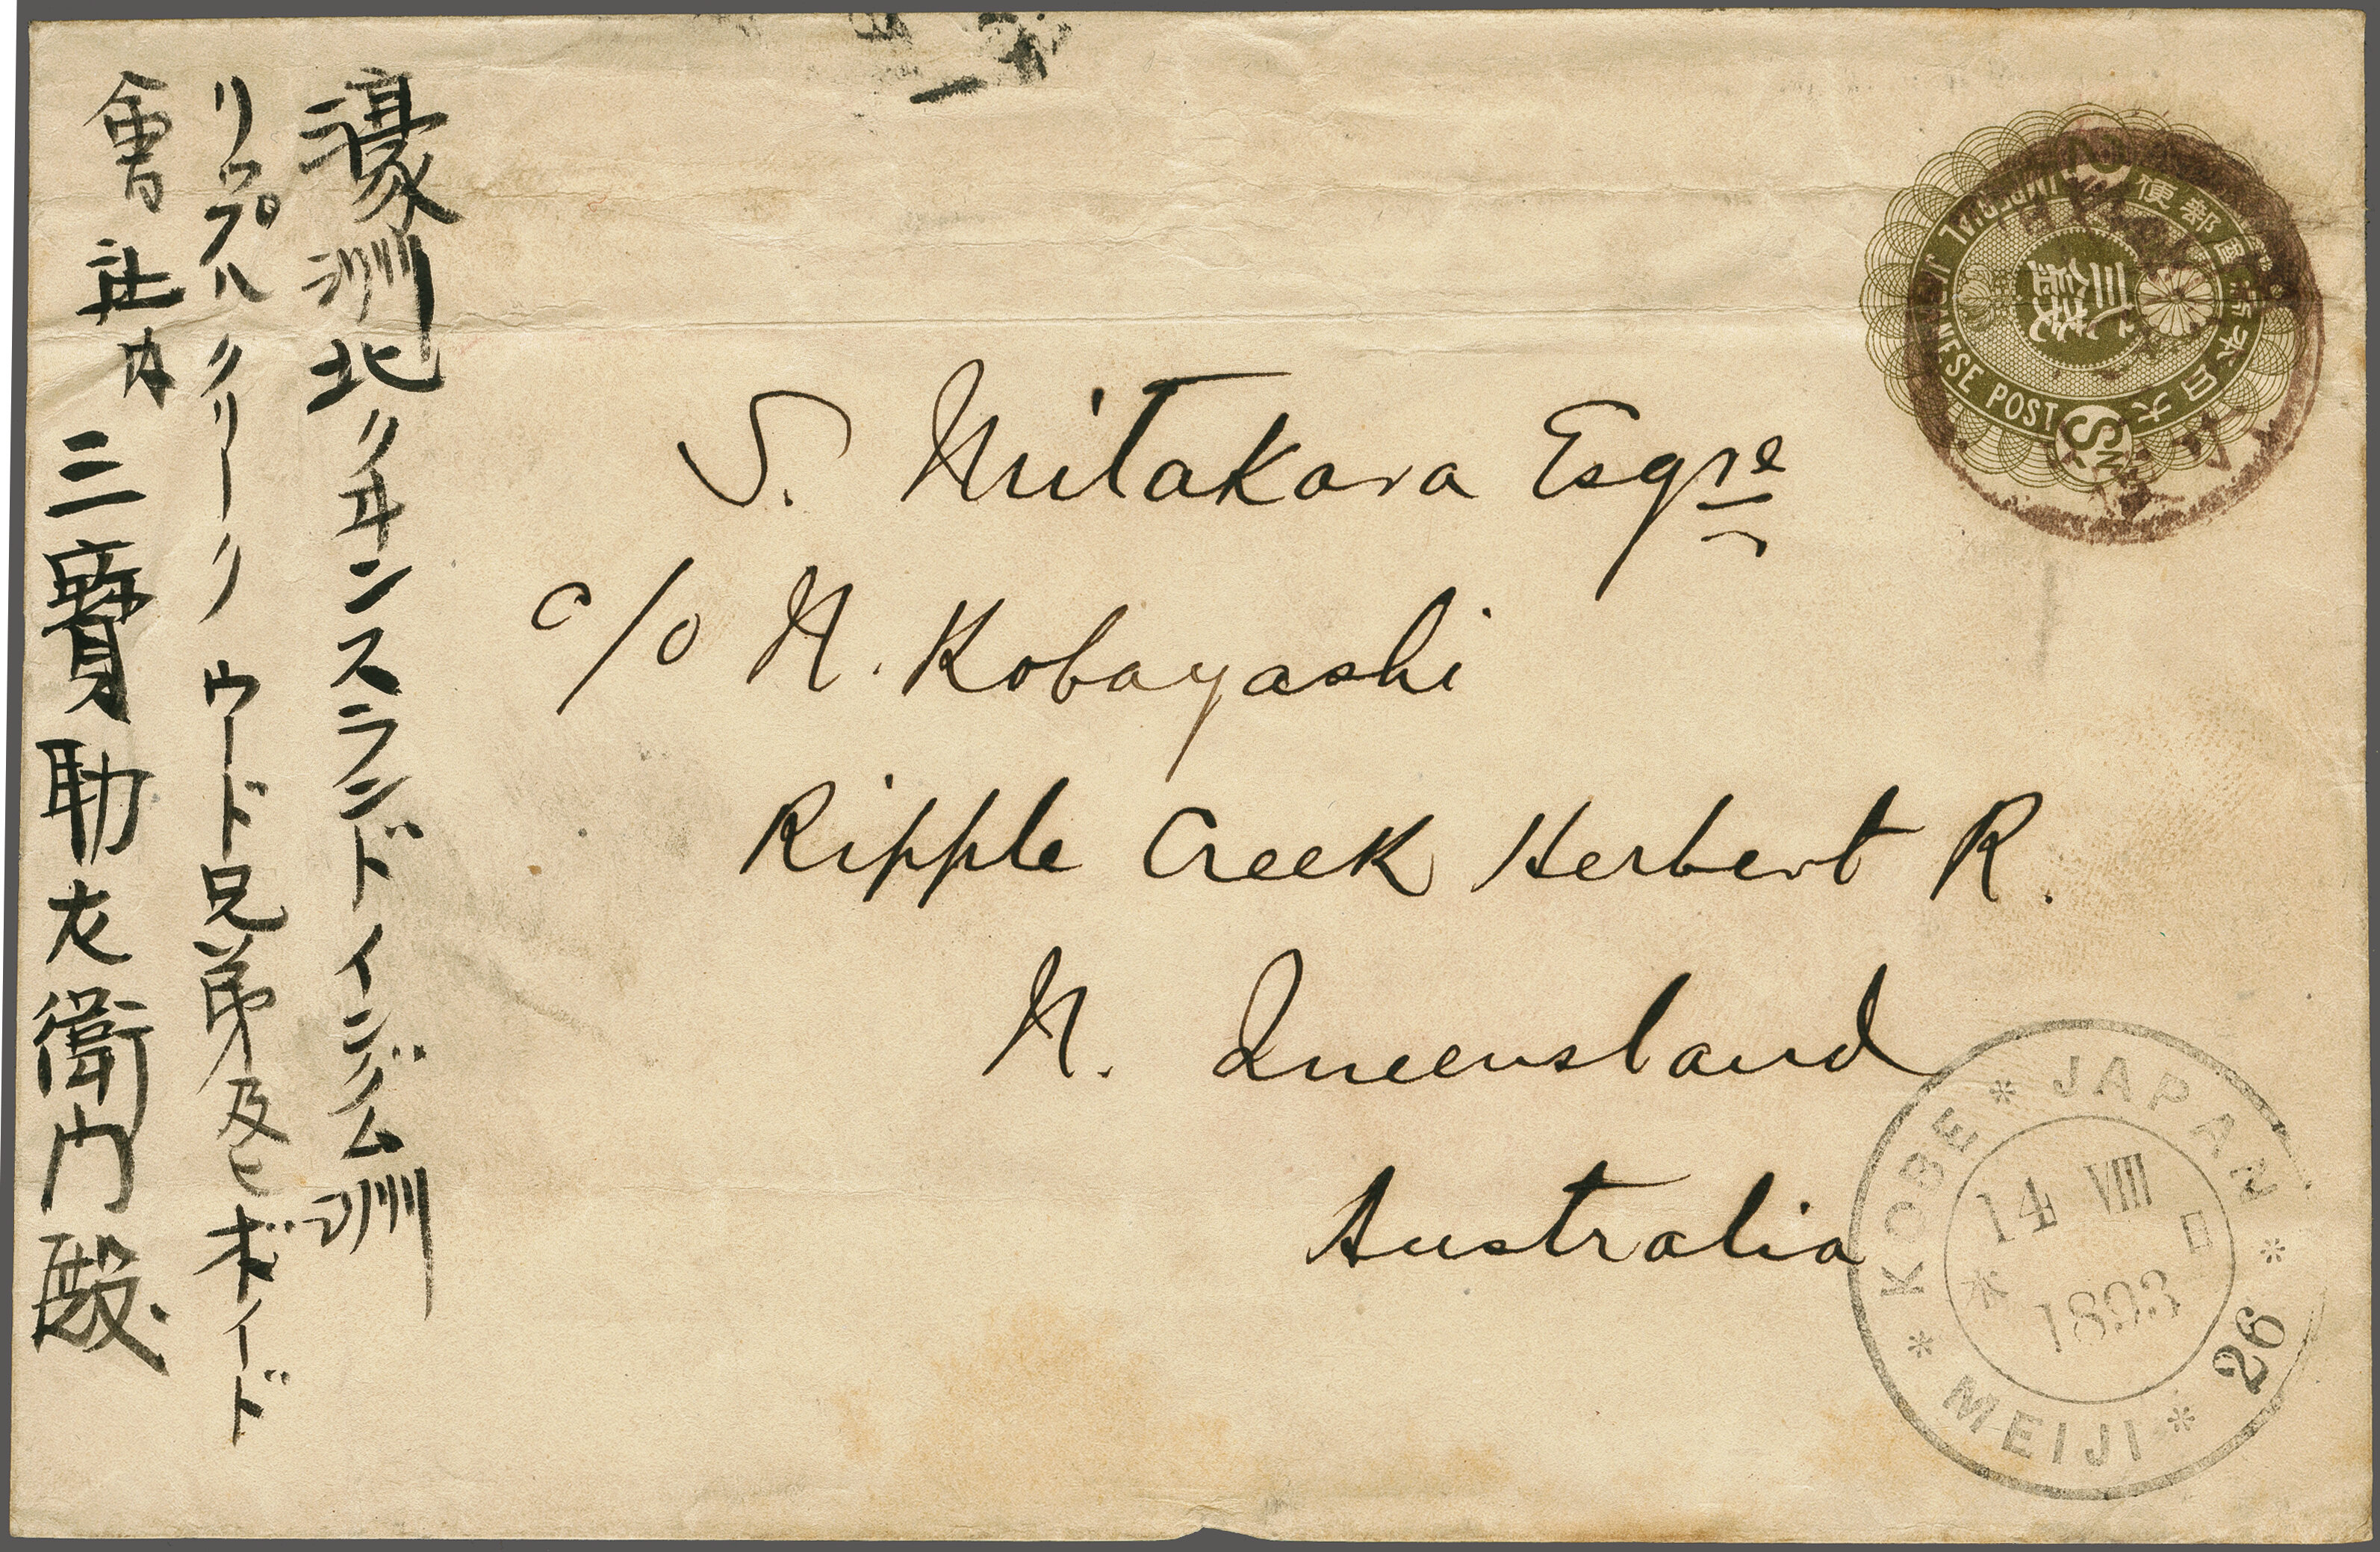 濠洲北クヰンスランドインガム洲
リップルクリーク ウード兄弟及ヒボイド
會社内
三寶助左衛門殿
S. Mitakara Esqre
c/o N. Kobayashi
Ripple Creek Herbert R.
N. Queensland
Australia
大日本帝國郵便
IMPERIAL JAPANESE POST
三錢
3 Sn
KOBE * JAPAN * 26 * MEIJI *
14 VIII
1893